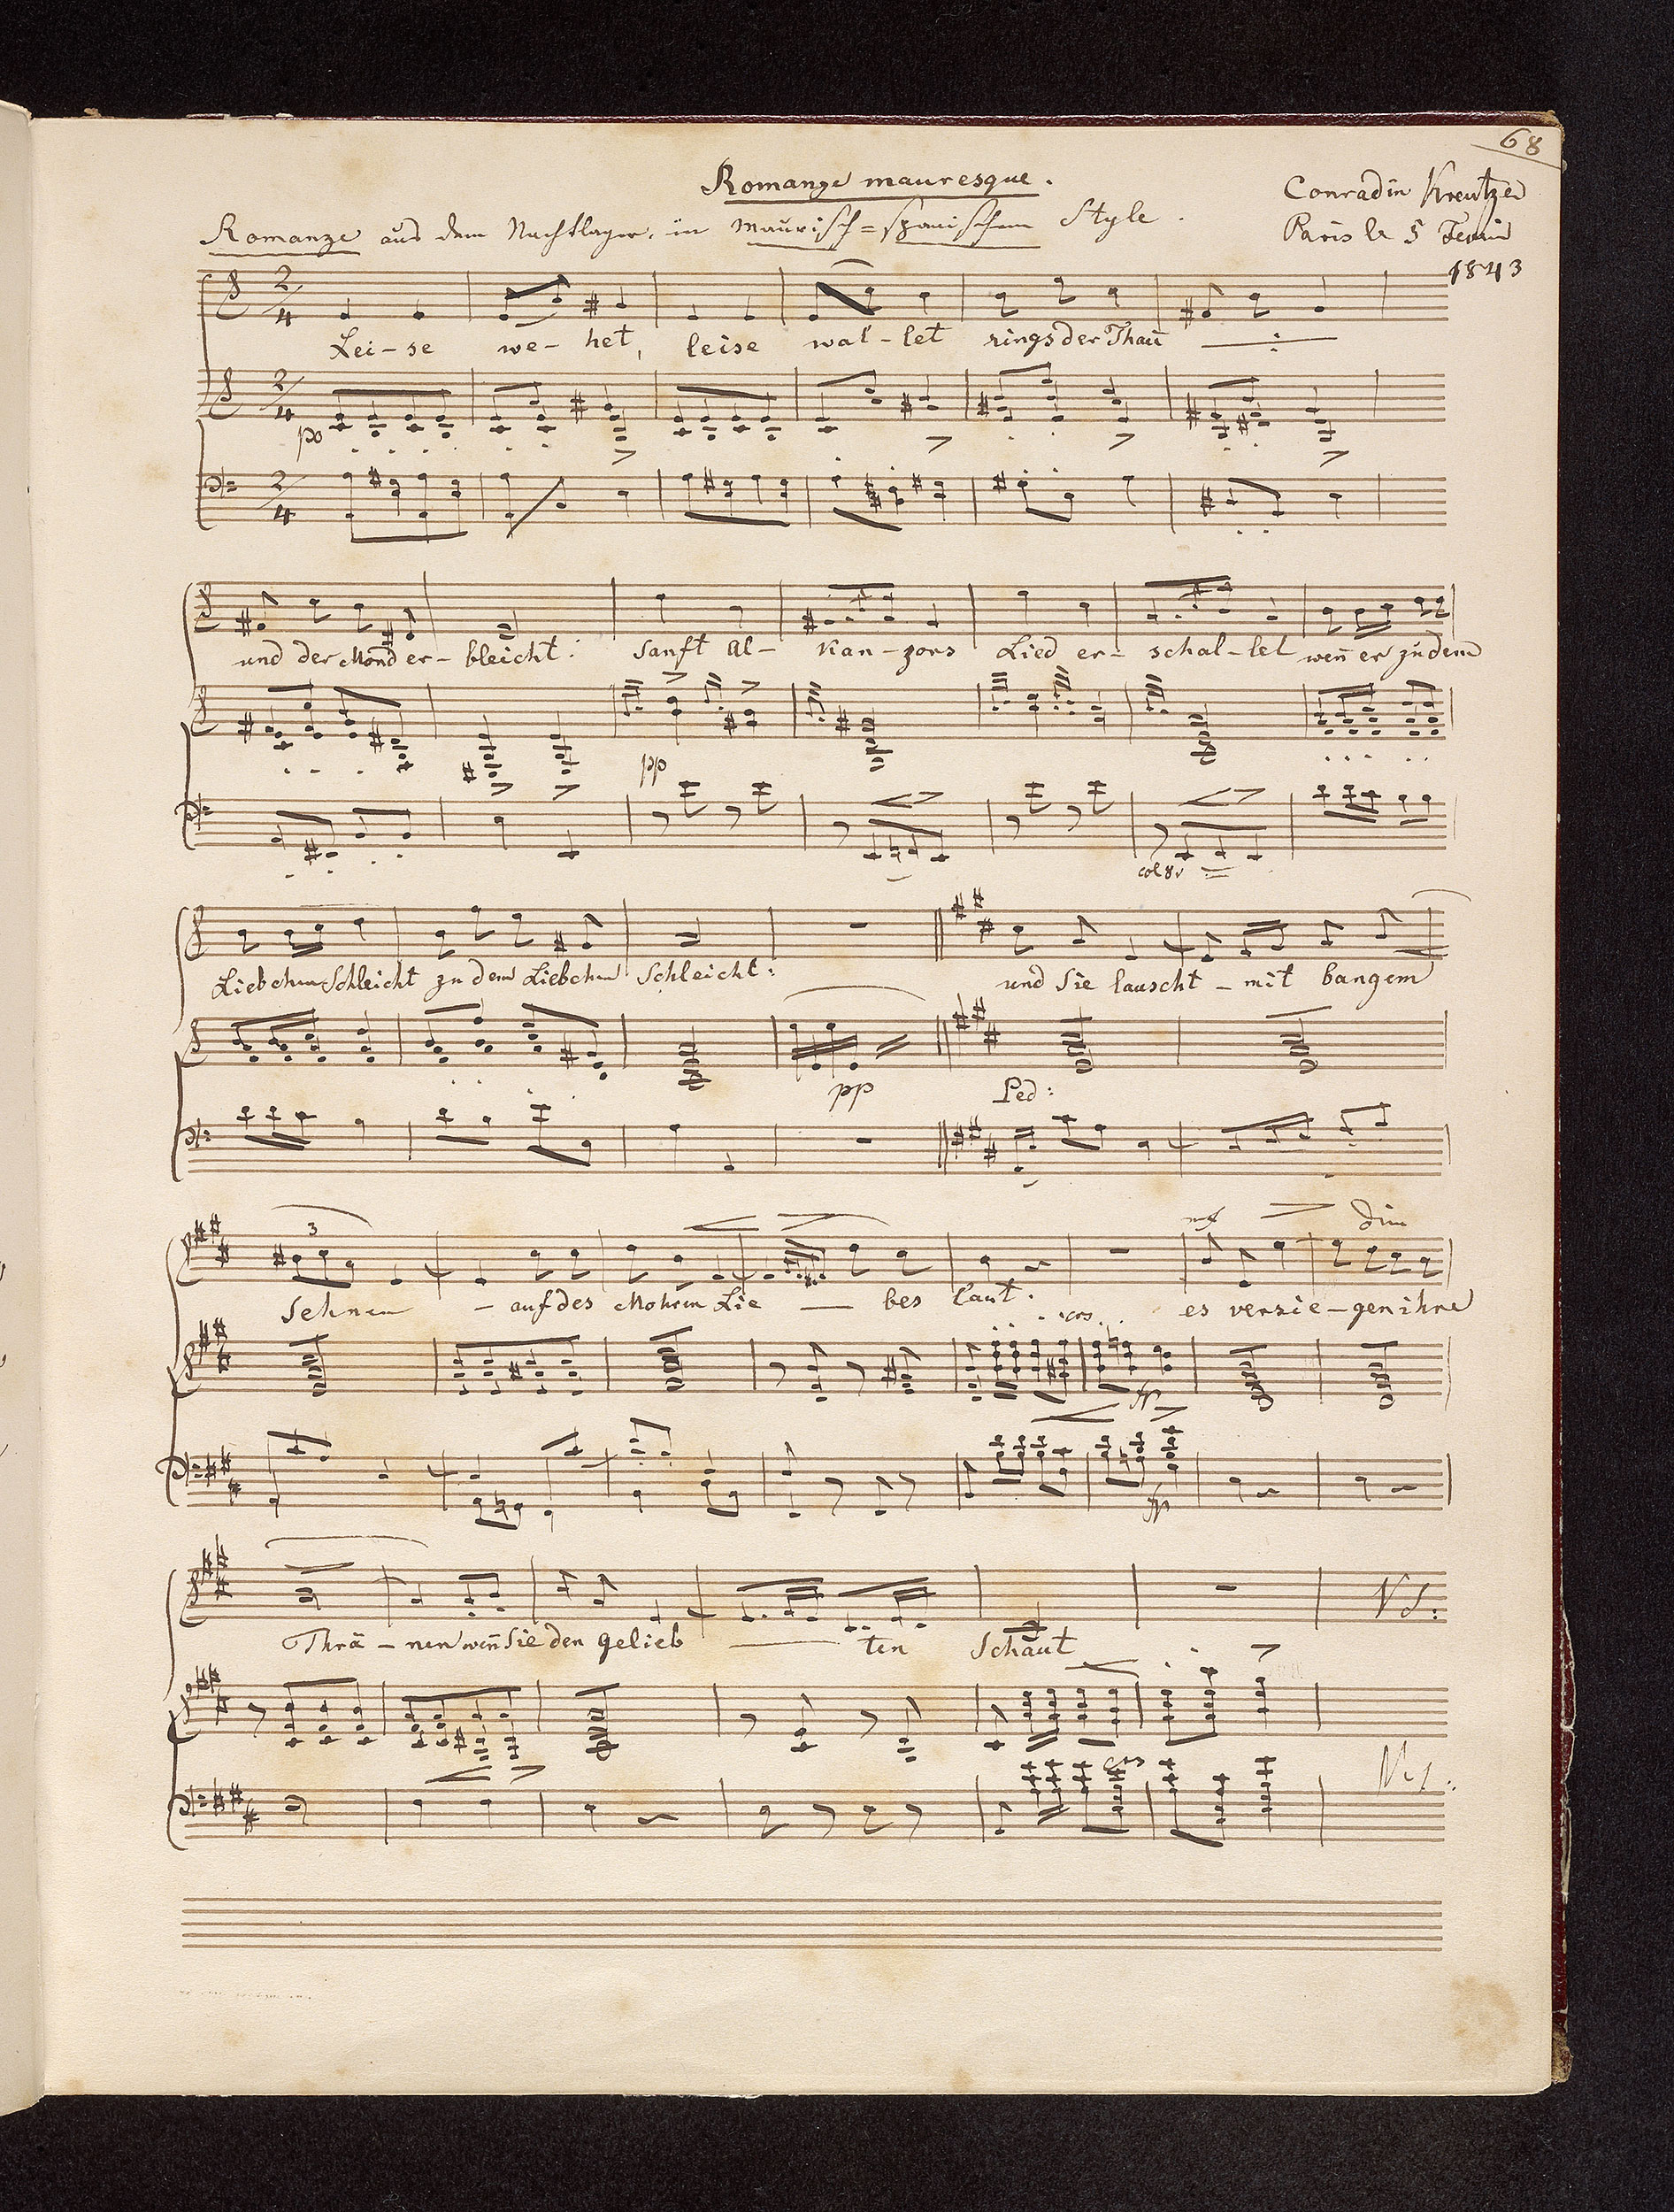 68
Romanze mauresque.
Conradin Kreutzer
Romanze aus dem Nachtlager. in Maurisch=spanischem Style.
Paris le 5
1843
2/4
Lei-se we-het, leise wal-let rings der Thau
2/4
po
2/4
und der Mond er-bleicht: Sanft Al-kan-zors Lied er-schal-let weñ er zu dem
pp
col 8v
Liebchen Schleicht zu dem Liebchen Schleicht: und Sie lauscht - mit bangem
pp Ped:
3 mf dim
Sehnen - auf des Mohren Lie — bes laut. es versie-gen ihre
cres
fp
fp
VS:
Thrä-nen weñ Sie den gelieb — ten Schaut
cres
Vs: